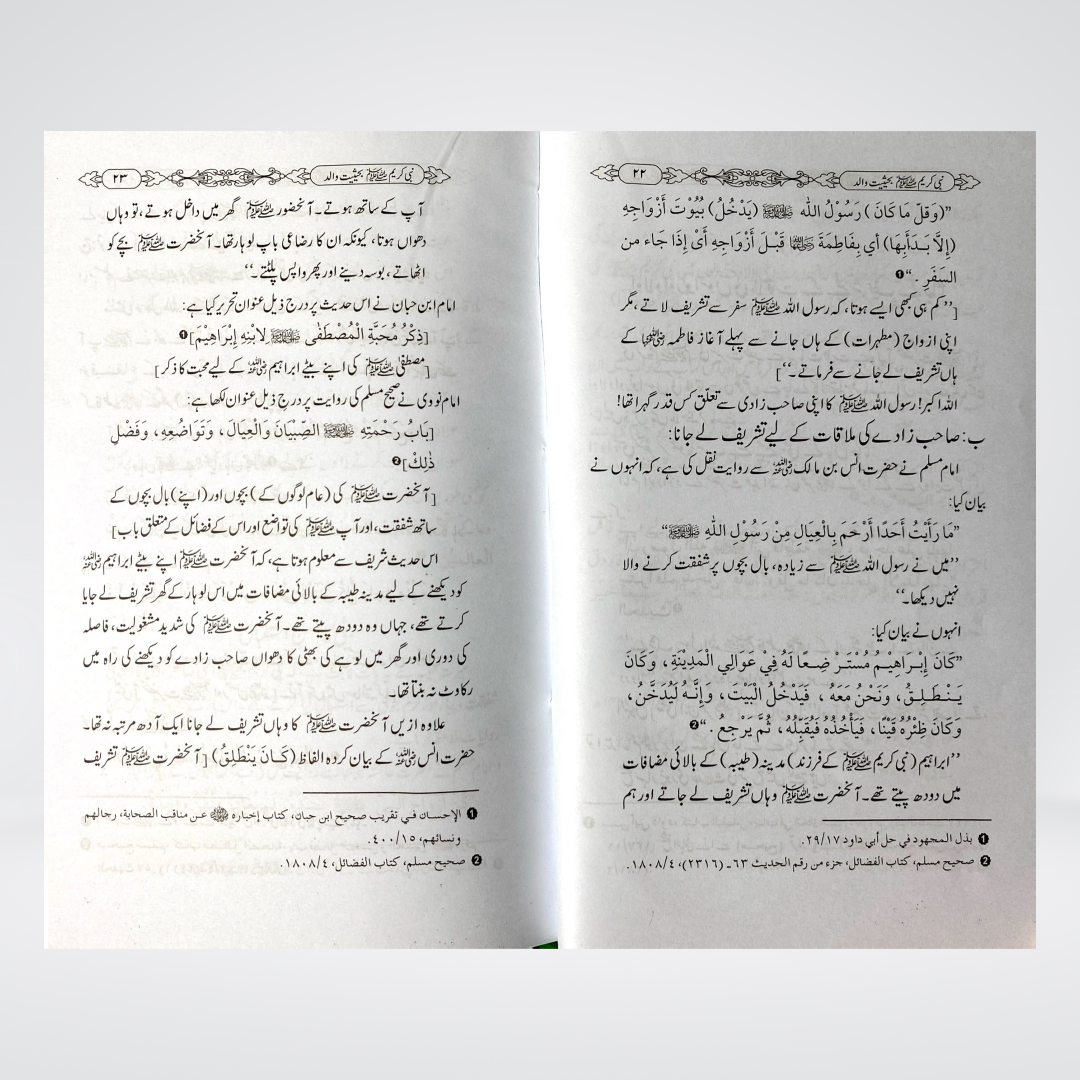 نبی کریم ﷺ بحیثیت والد
۲۲
”(وَقَلّ مَا کَانَ ) رَسُوْلُ اللّٰہ ﷺ (یَدْخُلُ) بُیُوْتَ أَزْوَاجِهِ
(إِلَّا بَدَأَبِهَا) أي بِفَاطِمَةَ رضی اللہ عنہا قَبْلَ أَزْوَاجِهِ أَیْ إِذَا جَاء من
السفَرِ .“❶
[’’کم ہی کبھی ایسے ہوتا، کہ رسول اللہ ﷺ سفر سے تشریف لاتے، مگر
اپنی ازواج (مطہرات) کے ہاں جانے سے پہلے آغاز فاطمہ رضی اللہ عنہا کے
ہاں تشریف لے جانے سے فرماتے۔‘‘]
اللہ اکبر! رسول اللہ ﷺ کا اپنی صاحب زادی سے تعلّق کس قدر گہرا تھا!
ب: صاحب زادے کی ملاقات کے لیے تشریف لے جانا:
امام مسلم نے حضرت انس بن مالک رضی اللہ عنہ سے روایت نقل کی ہے، کہ انہوں نے
بیان کیا:
”مَا رَأَیْتُ أَحَدًا أَرْحَمَ بِالْعِیَالِ مِنْ رَسُوْلِ اللّٰهِ ﷺ“
’’میں نے رسول اللہ ﷺ سے زیادہ، بال بچوں پر شفقت کرنے والا
نہیں دیکھا۔‘‘
انہوں نے بیان کیا:
”کَانَ إِبْرَاهِیْمُ مُسْتَرْضِعًا لَهُ فِيْ عَوَالِي الْمَدِیْنَةِ، وَکَانَ
یَنْطَلِقُ، وَنَحْنُ مَعَهُ ، فَیَدْخُلُ الْبَیْتَ، وَإِنَّهُ لَیُدَخَّنُ،
وَکَانَ ظِئْرُهُ قَیْنًا، فَیَأْخُذُهُ فَیُقَبِّلُهُ، ثُمَّ یَرْجِعُ .“❷
’’ابراہیم (نبی کریم ﷺ کے فرزند) مدینہ (طیبہ) کے بالائی مضافات
میں دودھ پیتے تھے۔ آنحضرت ﷺ وہاں تشریف لے جاتے اور ہم
❶ بذل المجهود في حل أبي داود ۲۹/۱۷.
❷ صحيح مسلم، كتاب الفضائل، جزء من رقم الحديث ٦٣۔ (٢٣١٦)، ١٨٠٨/٤.
نبی کریم ﷺ بحیثیت والد
۲۳
آپ کے ساتھ ہوتے۔ آنحضور ﷺ گھر میں داخل ہوتے، تو وہاں
دھواں ہوتا، کیونکہ ان کا رضاعی باپ لوہار تھا۔ آنحضرت ﷺ بچے کو
اٹھاتے، بوسہ دیتے اور پھر واپس پلٹتے۔‘‘
امام ابن حبان نے اس حدیث پر درج ذیل عنوان تحریر کیا ہے:
[ذِکْرُ مُحَبَّةِ الْمُصْطَفٰی ﷺ لِابْنِهِ إِبْرَاهِیْمَ]❶
[مصطفیٰ ﷺ کی اپنے بیٹے ابراہیم رضی اللہ عنہ کے لیے محبت کا ذکر]
امام نووی نے صحیح مسلم کی روایت پر درجِ ذیل عنوان لکھا ہے:
[بَابُ رَحْمَتِهِ ﷺ الصِّبْیَانَ وَالْعِیَالَ، وَتَوَاضُعِهِ، وَفَضْلِ
ذٰلِكَ]❷
[آنحضرت ﷺ کی (عام لوگوں کے) بچوں اور (اپنے) بال بچوں کے
ساتھ شفقت، اور آپ ﷺ کی تواضع اور اس کے فضائل کے متعلق باب]
اس حدیث شریف سے معلوم ہوتا ہے، کہ آنحضرت ﷺ اپنے بیٹے ابراہیم رضی اللہ عنہ
کو دیکھنے کے لیے مدینہ طیبہ کے بالائی مضافات میں اس لوہار کے گھر تشریف لے جایا
کرتے تھے، جہاں وہ دودھ پیتے تھے۔ آنحضرت ﷺ کی شدید مشغولیت، فاصلہ
کی دوری اور گھر میں لوہے کی بھٹی کا دھواں صاحب زادے کو دیکھنے کی راہ میں
رکاوٹ نہ بنتا تھا۔
علاوہ ازیں آنحضرت ﷺ کا وہاں تشریف لے جانا ایک آدھ مرتبہ نہ تھا۔
حضرت انس رضی اللہ عنہ کے بیان کردہ الفاظ (کَانَ یَنْطَلِقُ) [آنحضرت ﷺ تشریف
❶ الإحسان في تقريب صحيح ابن حبان، كتاب إخباره ﷺ عن مناقب الصحابة، رجالهم
ونسائهم، ٤٠٠/١٥.
❷ صحيح مسلم، كتاب الفضائل، ١٨٠٨/٤.